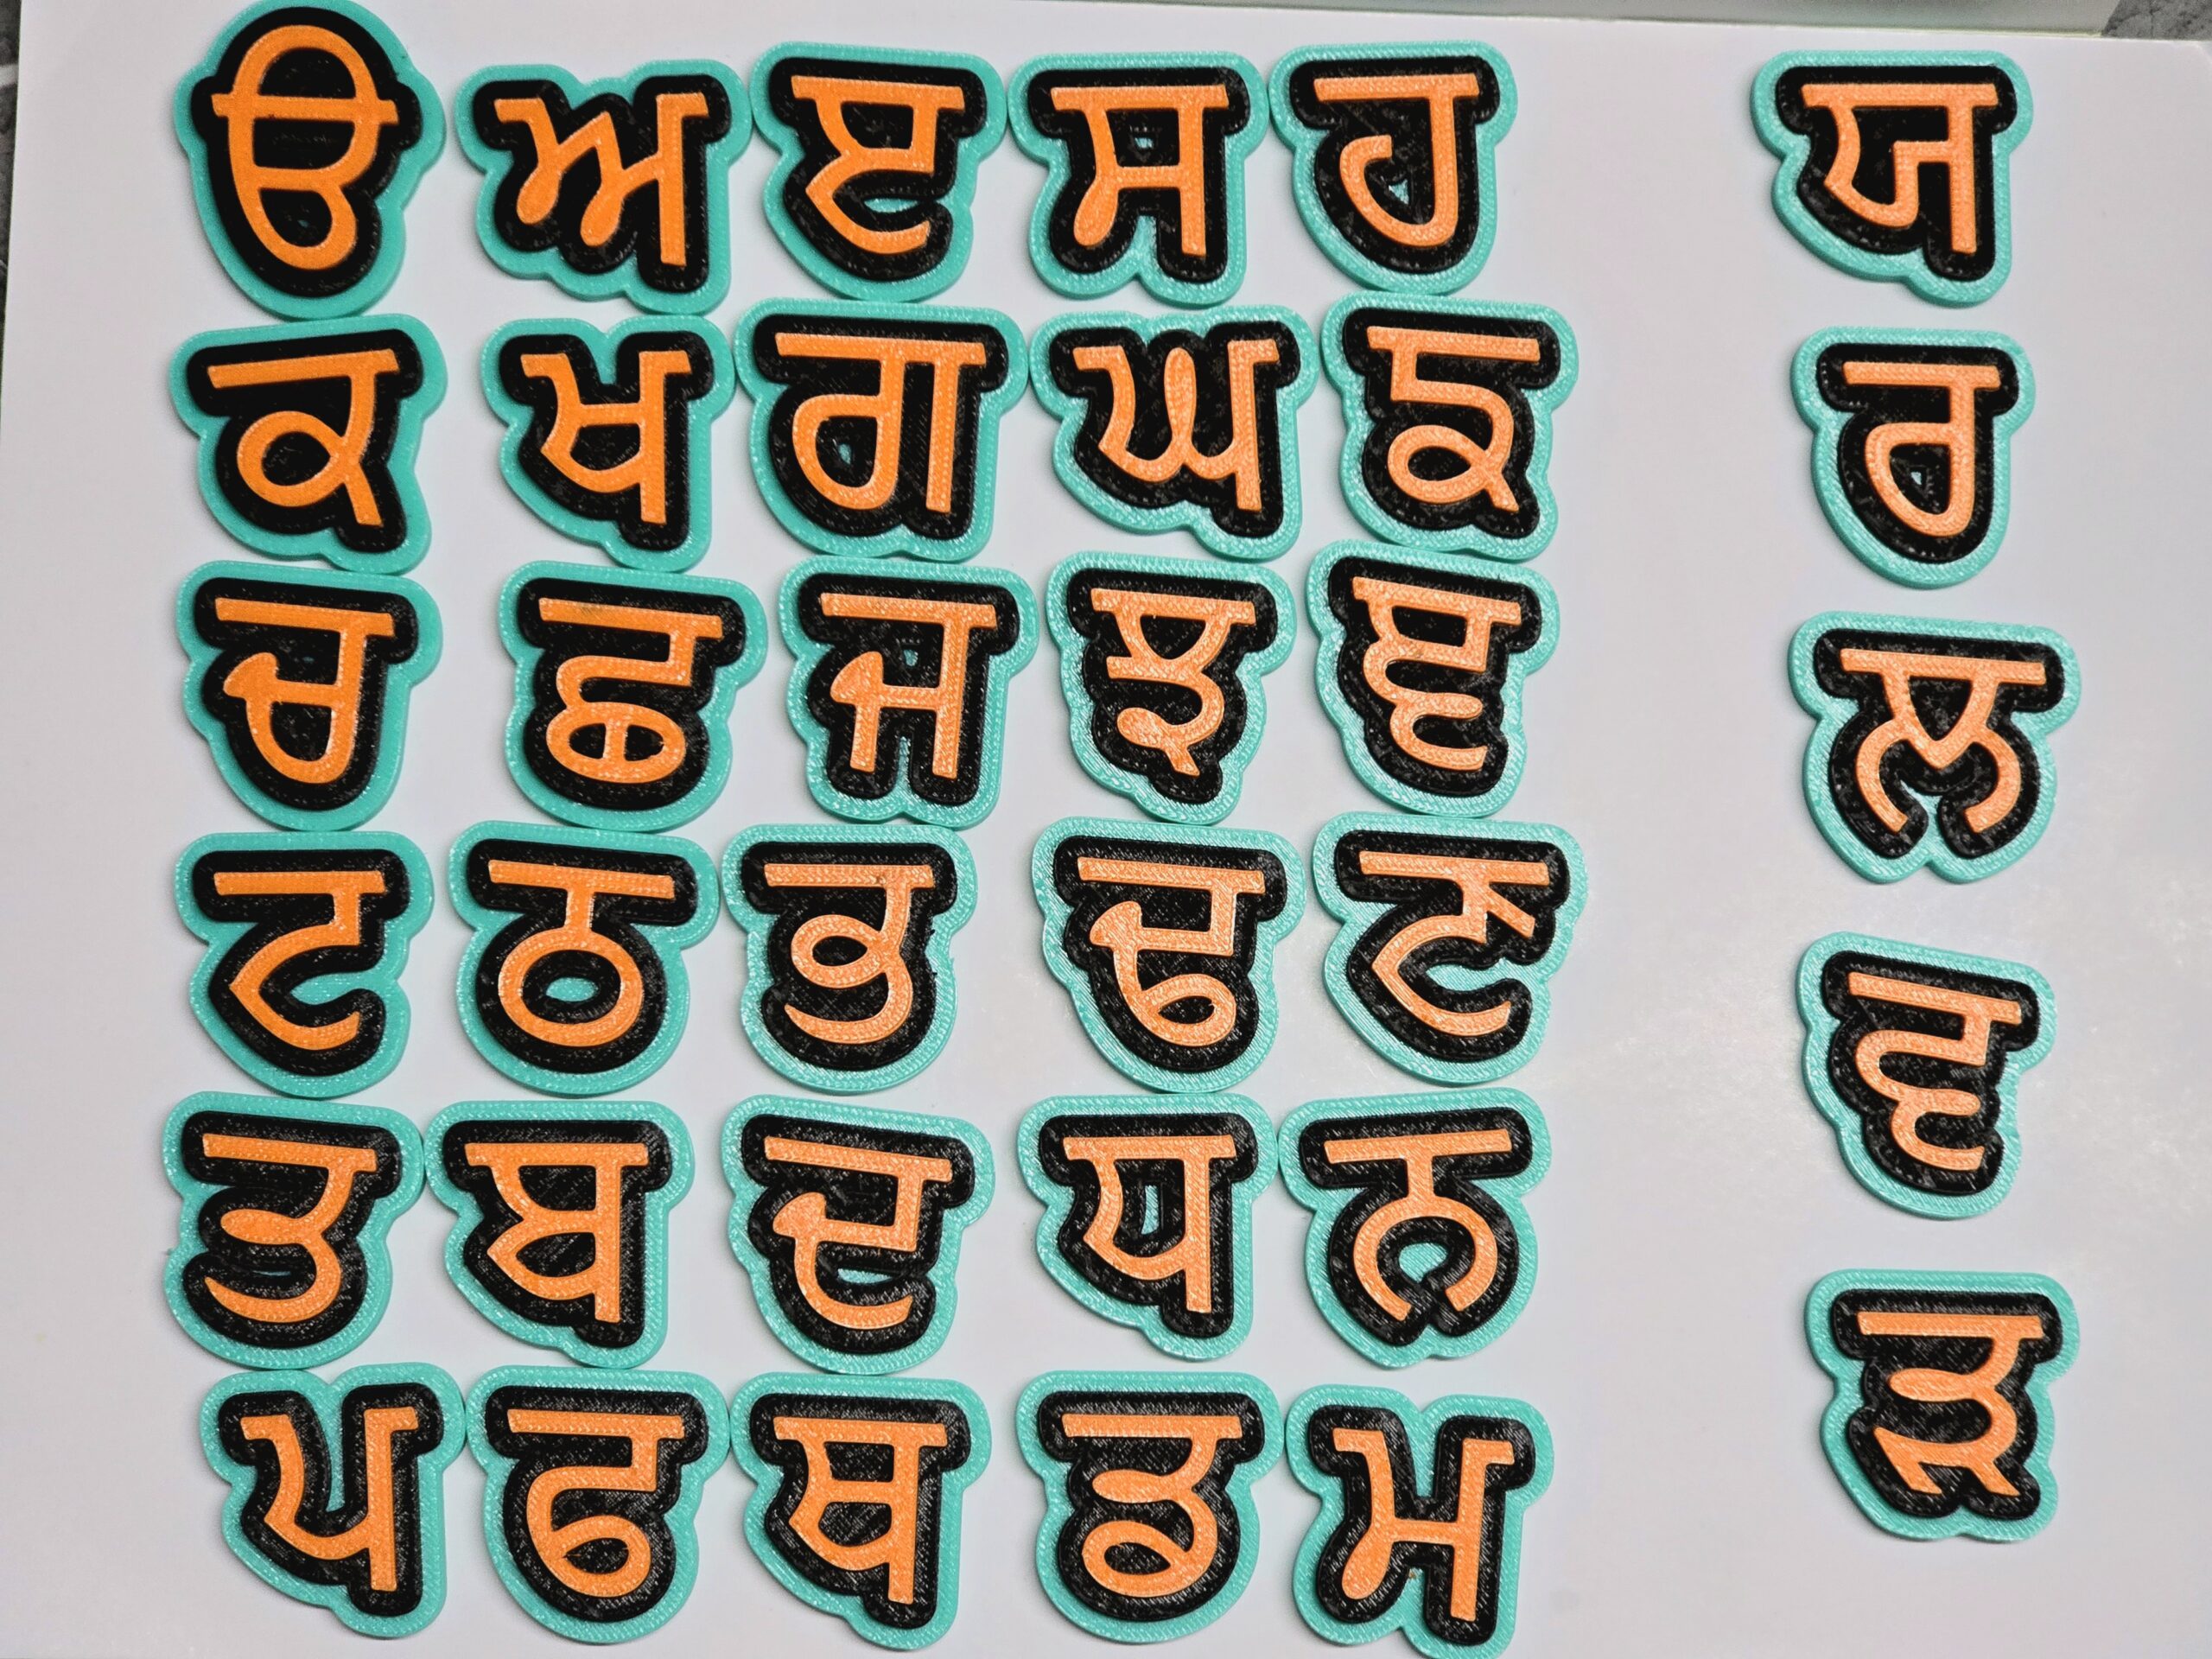 ੳ ਅ ੲ ਸ ਹ ਯ
ਕ ਖ ਗ ਘ ਙ ਰ
ਚ ਛ ਜ ਝ ਞ ਲ
ਟ ਠ ਭ ਢ ਣ ਵ
ਤ ਬ ਦ ਧ ਨ ੜ
ਪ ਫ ਥ ਡ ਮ